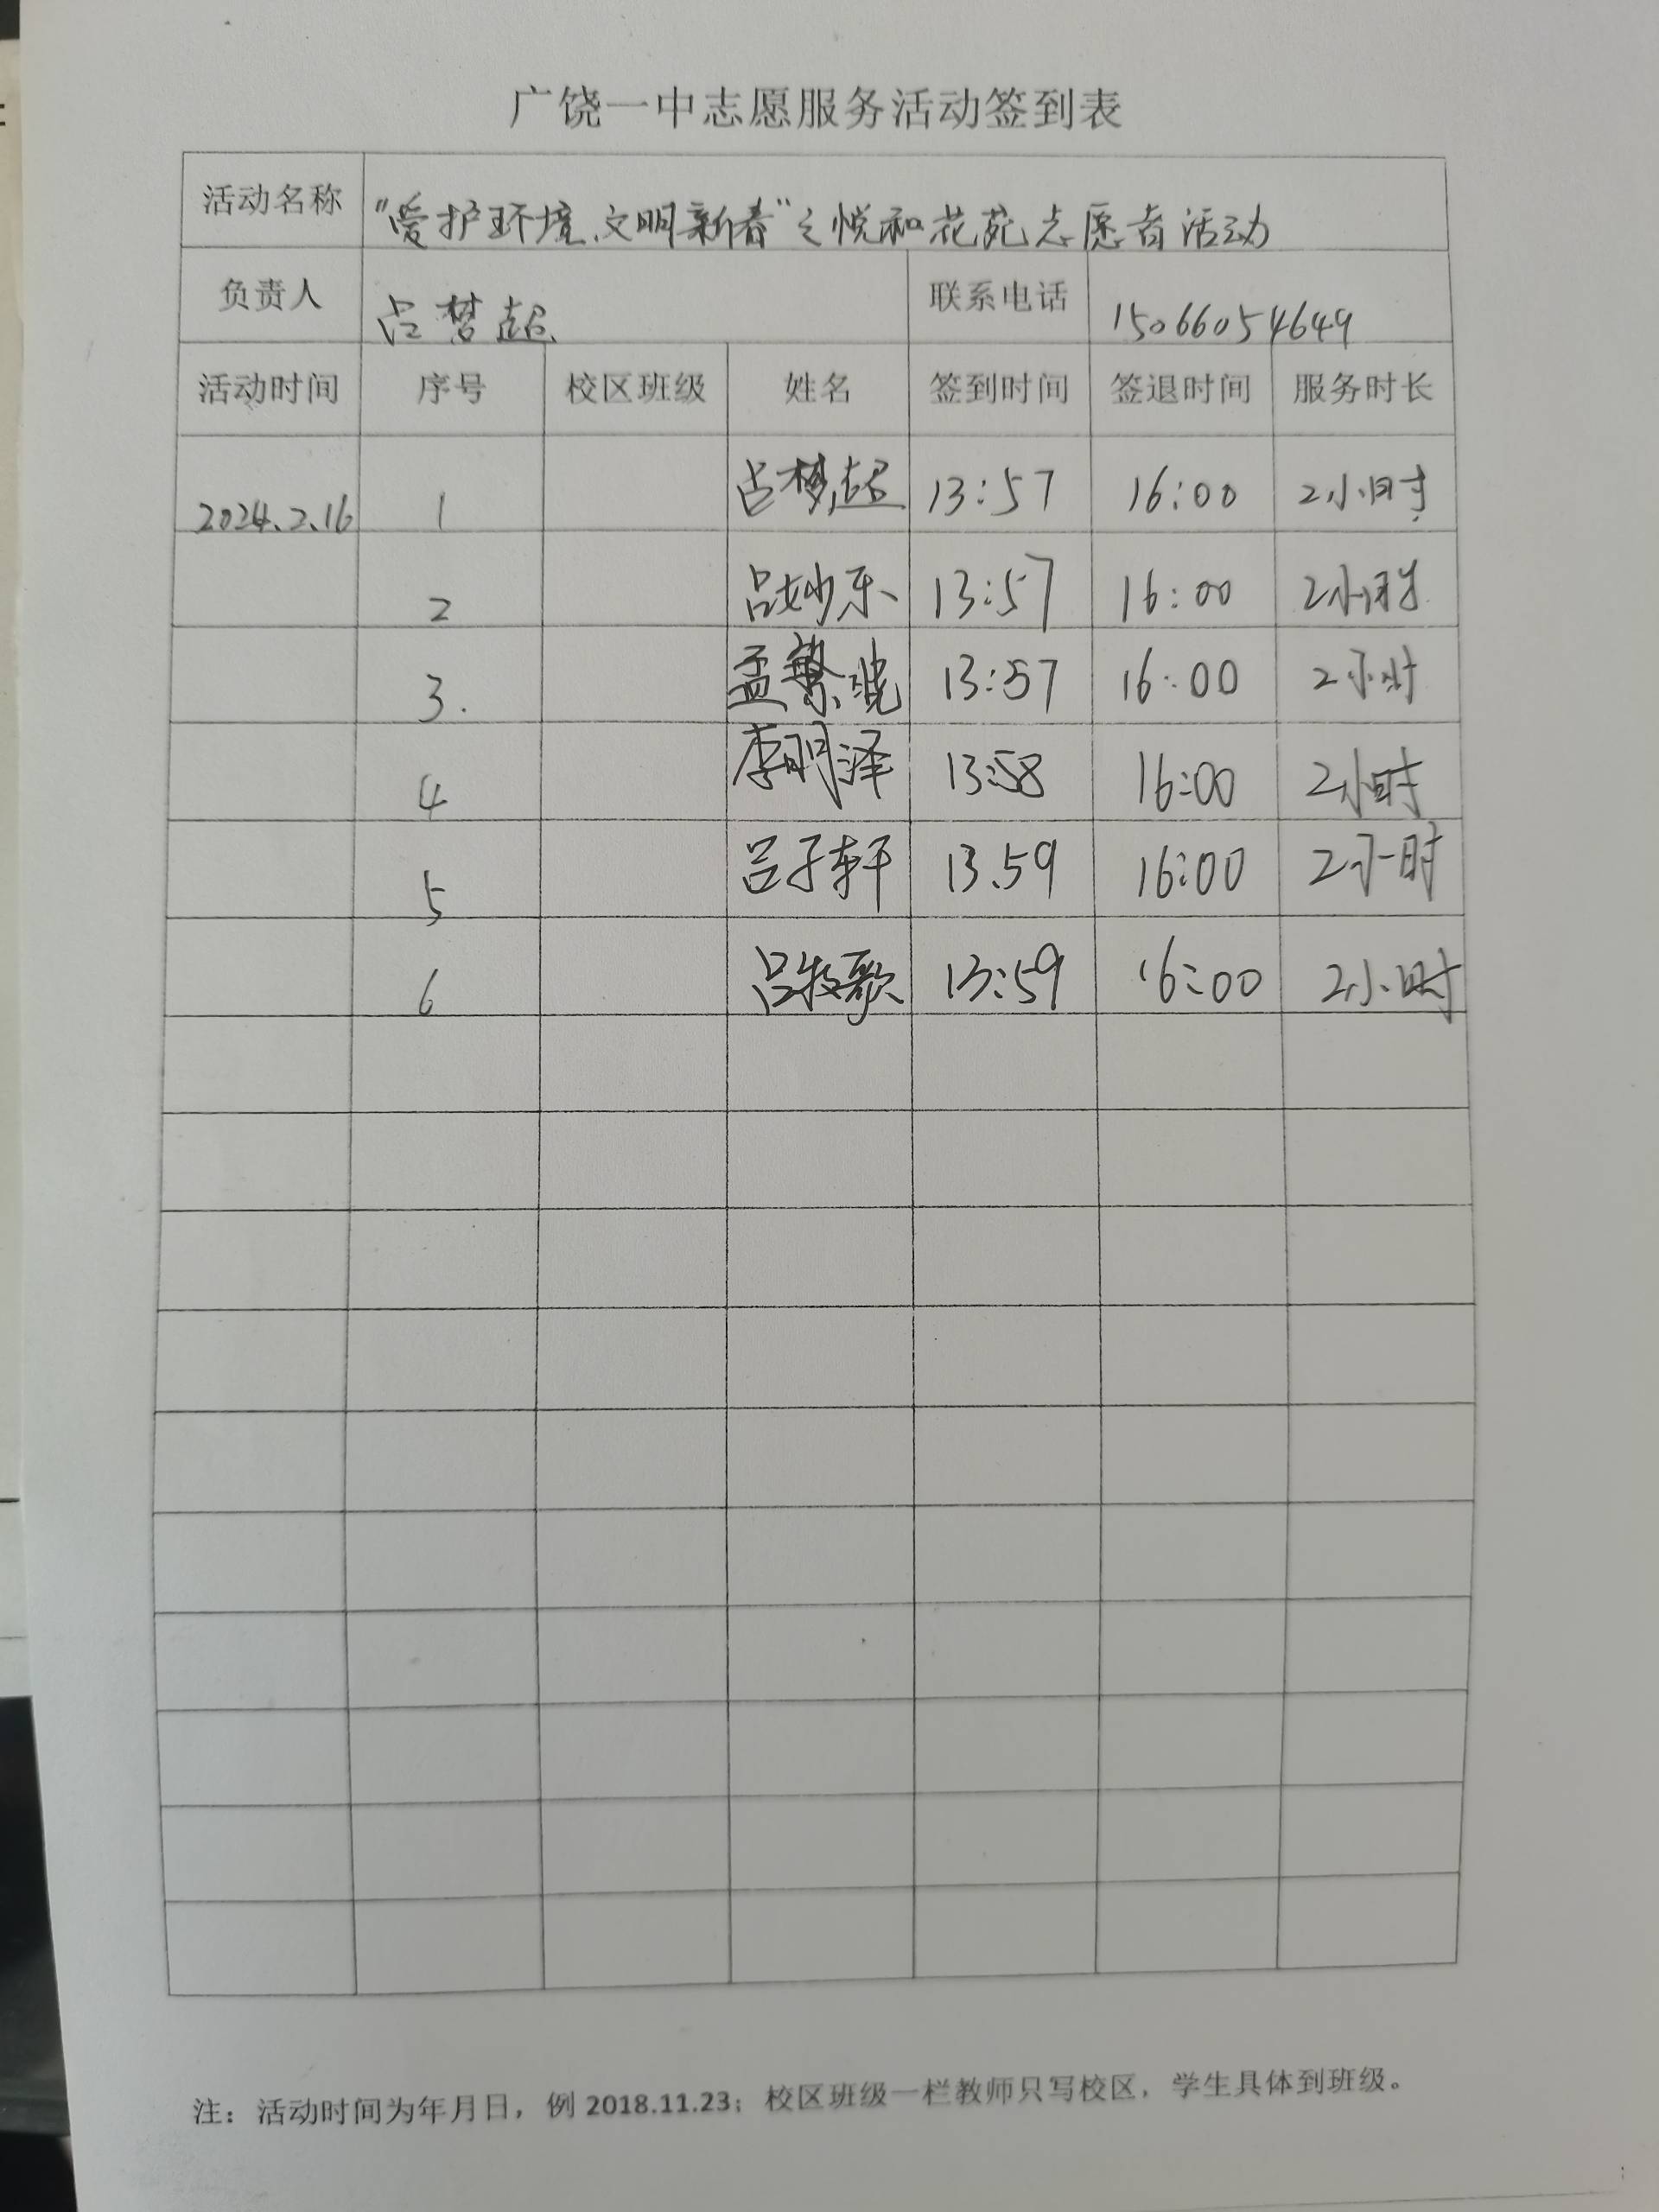 广饶一中志愿服务活动签到表
活动名称 "爱护环境、文明新春"之悦和花苑志愿者活动
负责人 吕梦超 联系电话 15066054649
活动时间 序号 校区班级 姓名 签到时间 签退时间 服务时长
2024.2.16 1 吕梦超 13:57 16:00 2小时
2 吕妙乐 13:57 16:00 2小时
3. 孟繁 13:57 16:00 2小时
4 李明泽 13:58 16:00 2小时
5 吕子轩 13.59 16:00 2小时
6 吕牧歌 13:59 16:00 2小时
注：活动时间为年月日，例 2018.11.23；校区班级一栏教师只写校区，学生具体到班级。